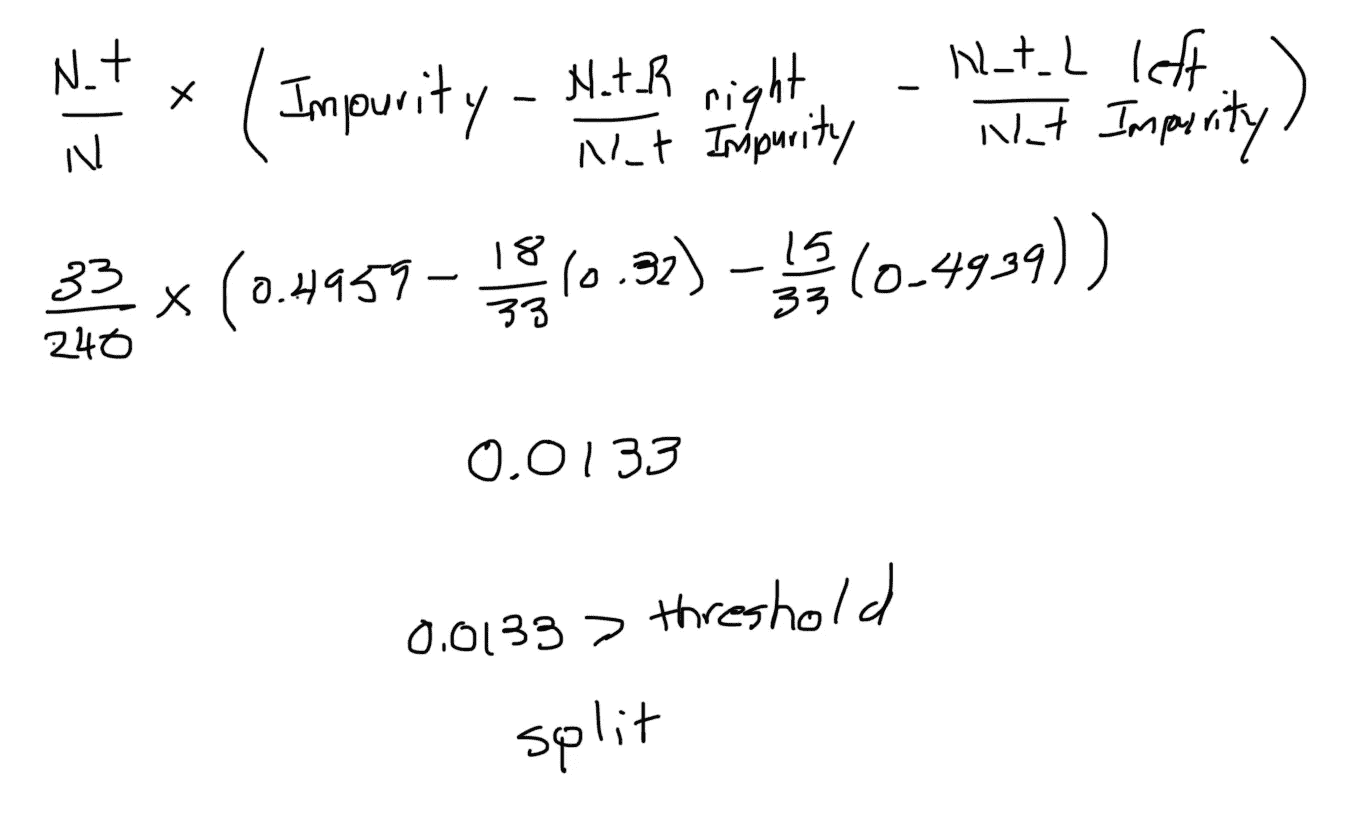 N_t/N × (Impurity - N_t_R/N_t right Impurity - N_t_L/N_t left Impurity)
33/240 × (0.4959 - 18/33 (0.32) - 15/33 (0.4939))
0.0133
0.0133 > threshold
split